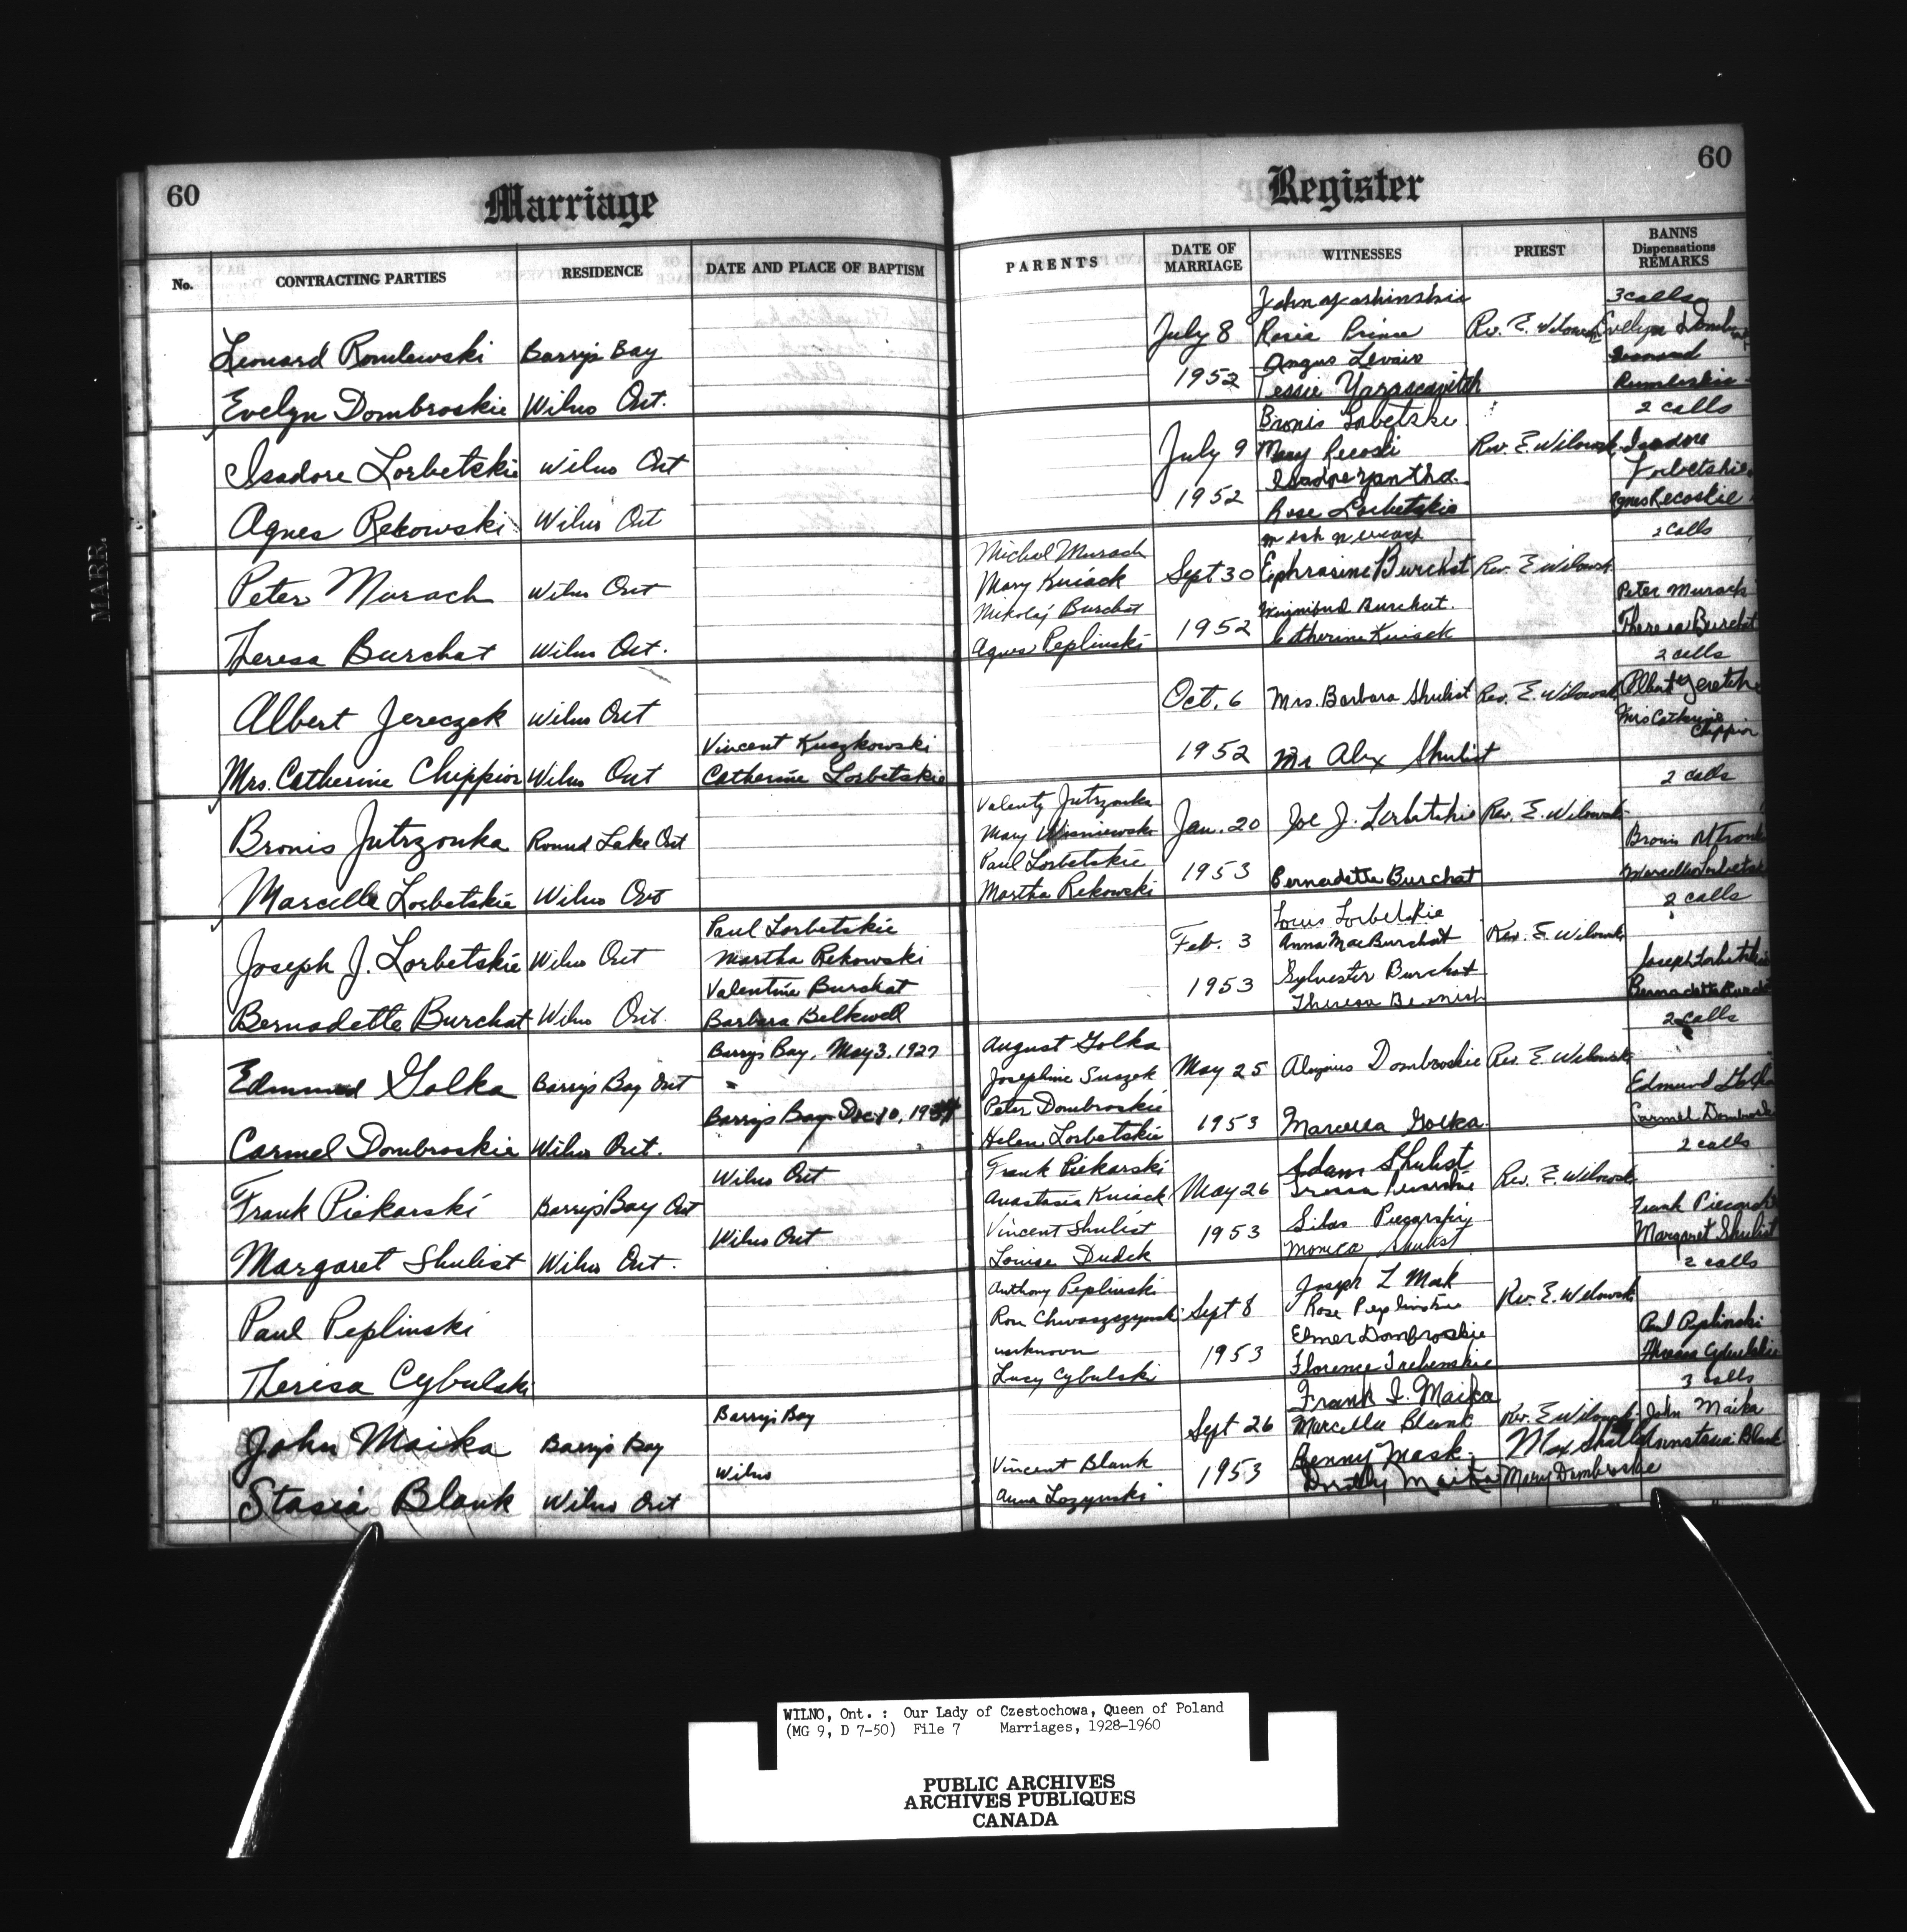 60
Marriage
Register
60
No.
CONTRACTING PARTIES
RESIDENCE
DATE AND PLACE OF BAPTISM
PARENTS
DATE OF MARRIAGE
WITNESSES
PRIEST
BANNS
Dispensations
REMARKS
Leonard Romlewski Barry's Bay
Evelyn Dombroskie Wilno Ont.
July 8
1952
Rosie Prince
Angus Levair
Tessie Yarascavitch
Rev. E. Wilowski
3 calls
Isadore Lorbetskie Wilno Ont
Agnes Rekowski Wilno Ont
July 9
1952
Bronis Lorbetskie
Mary Recoski
Isadore Yantha
Rose Lorbetskie
Rev. E. Wilowski
2 calls
Isadore
Lorbetskie
Agnes Recoskie
Peter Murach Wilno Ont
Theresa Burchat Wilno Ont.
Michal Murach
Mary Kuiack
Nikolaj Burchat
Agnes Peplinski
Sept 30
1952
Ephrasine Burchat
Burchat
Catherine Kuiack
Rev. E Wilowski
2 calls
Peter Murach
Theresa Burchat
Albert Jereczek Wilno Ont
Mrs. Catherine Chippior Wilno Ont
Vincent Kuszkowski
Catherine Lorbetskie
Oct. 6
1952
Mrs. Barbara Shulist
Mr Alex Shulist
Rev. E. Wilowski
2 calls
Albert
Mrs Catherine
Chippior
Bronis Jutrzonka Round Lake Ont
Marcelle Lorbetskie Wilno Ont
Valenty Jutrzonka
Mary Wisniewski
Paul Lorbetskie
Martha Rekowski
Jan. 20
1953
Joe J. Lorbetskie
Bernadette Burchat
Rev. E. Wilowski
2 calls
Bronis
Joseph J. Lorbetskie Wilno Ont
Bernadette Burchat Wilno Ont.
Paul Lorbetskie
Martha Rekowski
Valentine Burchat
Barbara Belkwell
Feb. 3
1953
Louis Lorbetskie
Anna Mae Burchat
Sylvester Burchat
Theresa
Rev. E. Wilowski
2 calls
Joseph Lorbetskie
Bernadette Burchat
Edmund Golka Barry's Bay Ont
Carmel Dombroskie Wilno Ont.
Barry's Bay, May 3, 1927
Barry's Bay Dec 10,
August Golka
Josephine Suszek
Peter Dombroskie
Helen Lorbetskie
May 25
1953
Aloysius Dombroskie
Marcella Golka
Rev. E. Wilowski
2 calls
Edmund Golka
Carmel Dombroskie
Frank Piekarski Barry's Bay Ont
Margaret Shulist Wilno Ont.
Wilno Ont
Wilno Ont
Frank Piekarski
Anastasia Kuiack
Vincent Shulist
Louise Dudek
May 26
1953
Adam Shulist
Silas Piecarskiy
Monica Shulist
Rev. E. Wilowski
2 calls
Frank Piecarski
Margaret Shulist
Paul Peplinski
Theresa Cybulski
Anthony Peplinski
unknown
Lucy Cybulski
Sept 8
1953
Joseph L Mask
Rose Peplinskie
Elmer Dombroskie
Florence Trebenskie
Rev. E. Wilowski
2 calls
Paul Peplinski
Theresa Cybulskie
John Maika Barry's Bay
Stasia Blank Wilno Ont
Barry's Bay
Wilno
Vincent Blank
Anna Lozynski
Sept 26
1953
Frank I. Maika
Marcella Blank
Benny Mask
Dorothy Maika
Rev. E Wilowski
Mary Dombroskie
3 calls
John Maika
Annstasia Blank
MARR.
WILNO, Ont. : Our Lady of Czestochowa, Queen of Poland
(MG 9, D 7-50) File 7 Marriages, 1928-1960
PUBLIC ARCHIVES
ARCHIVES PUBLIQUES
CANADA